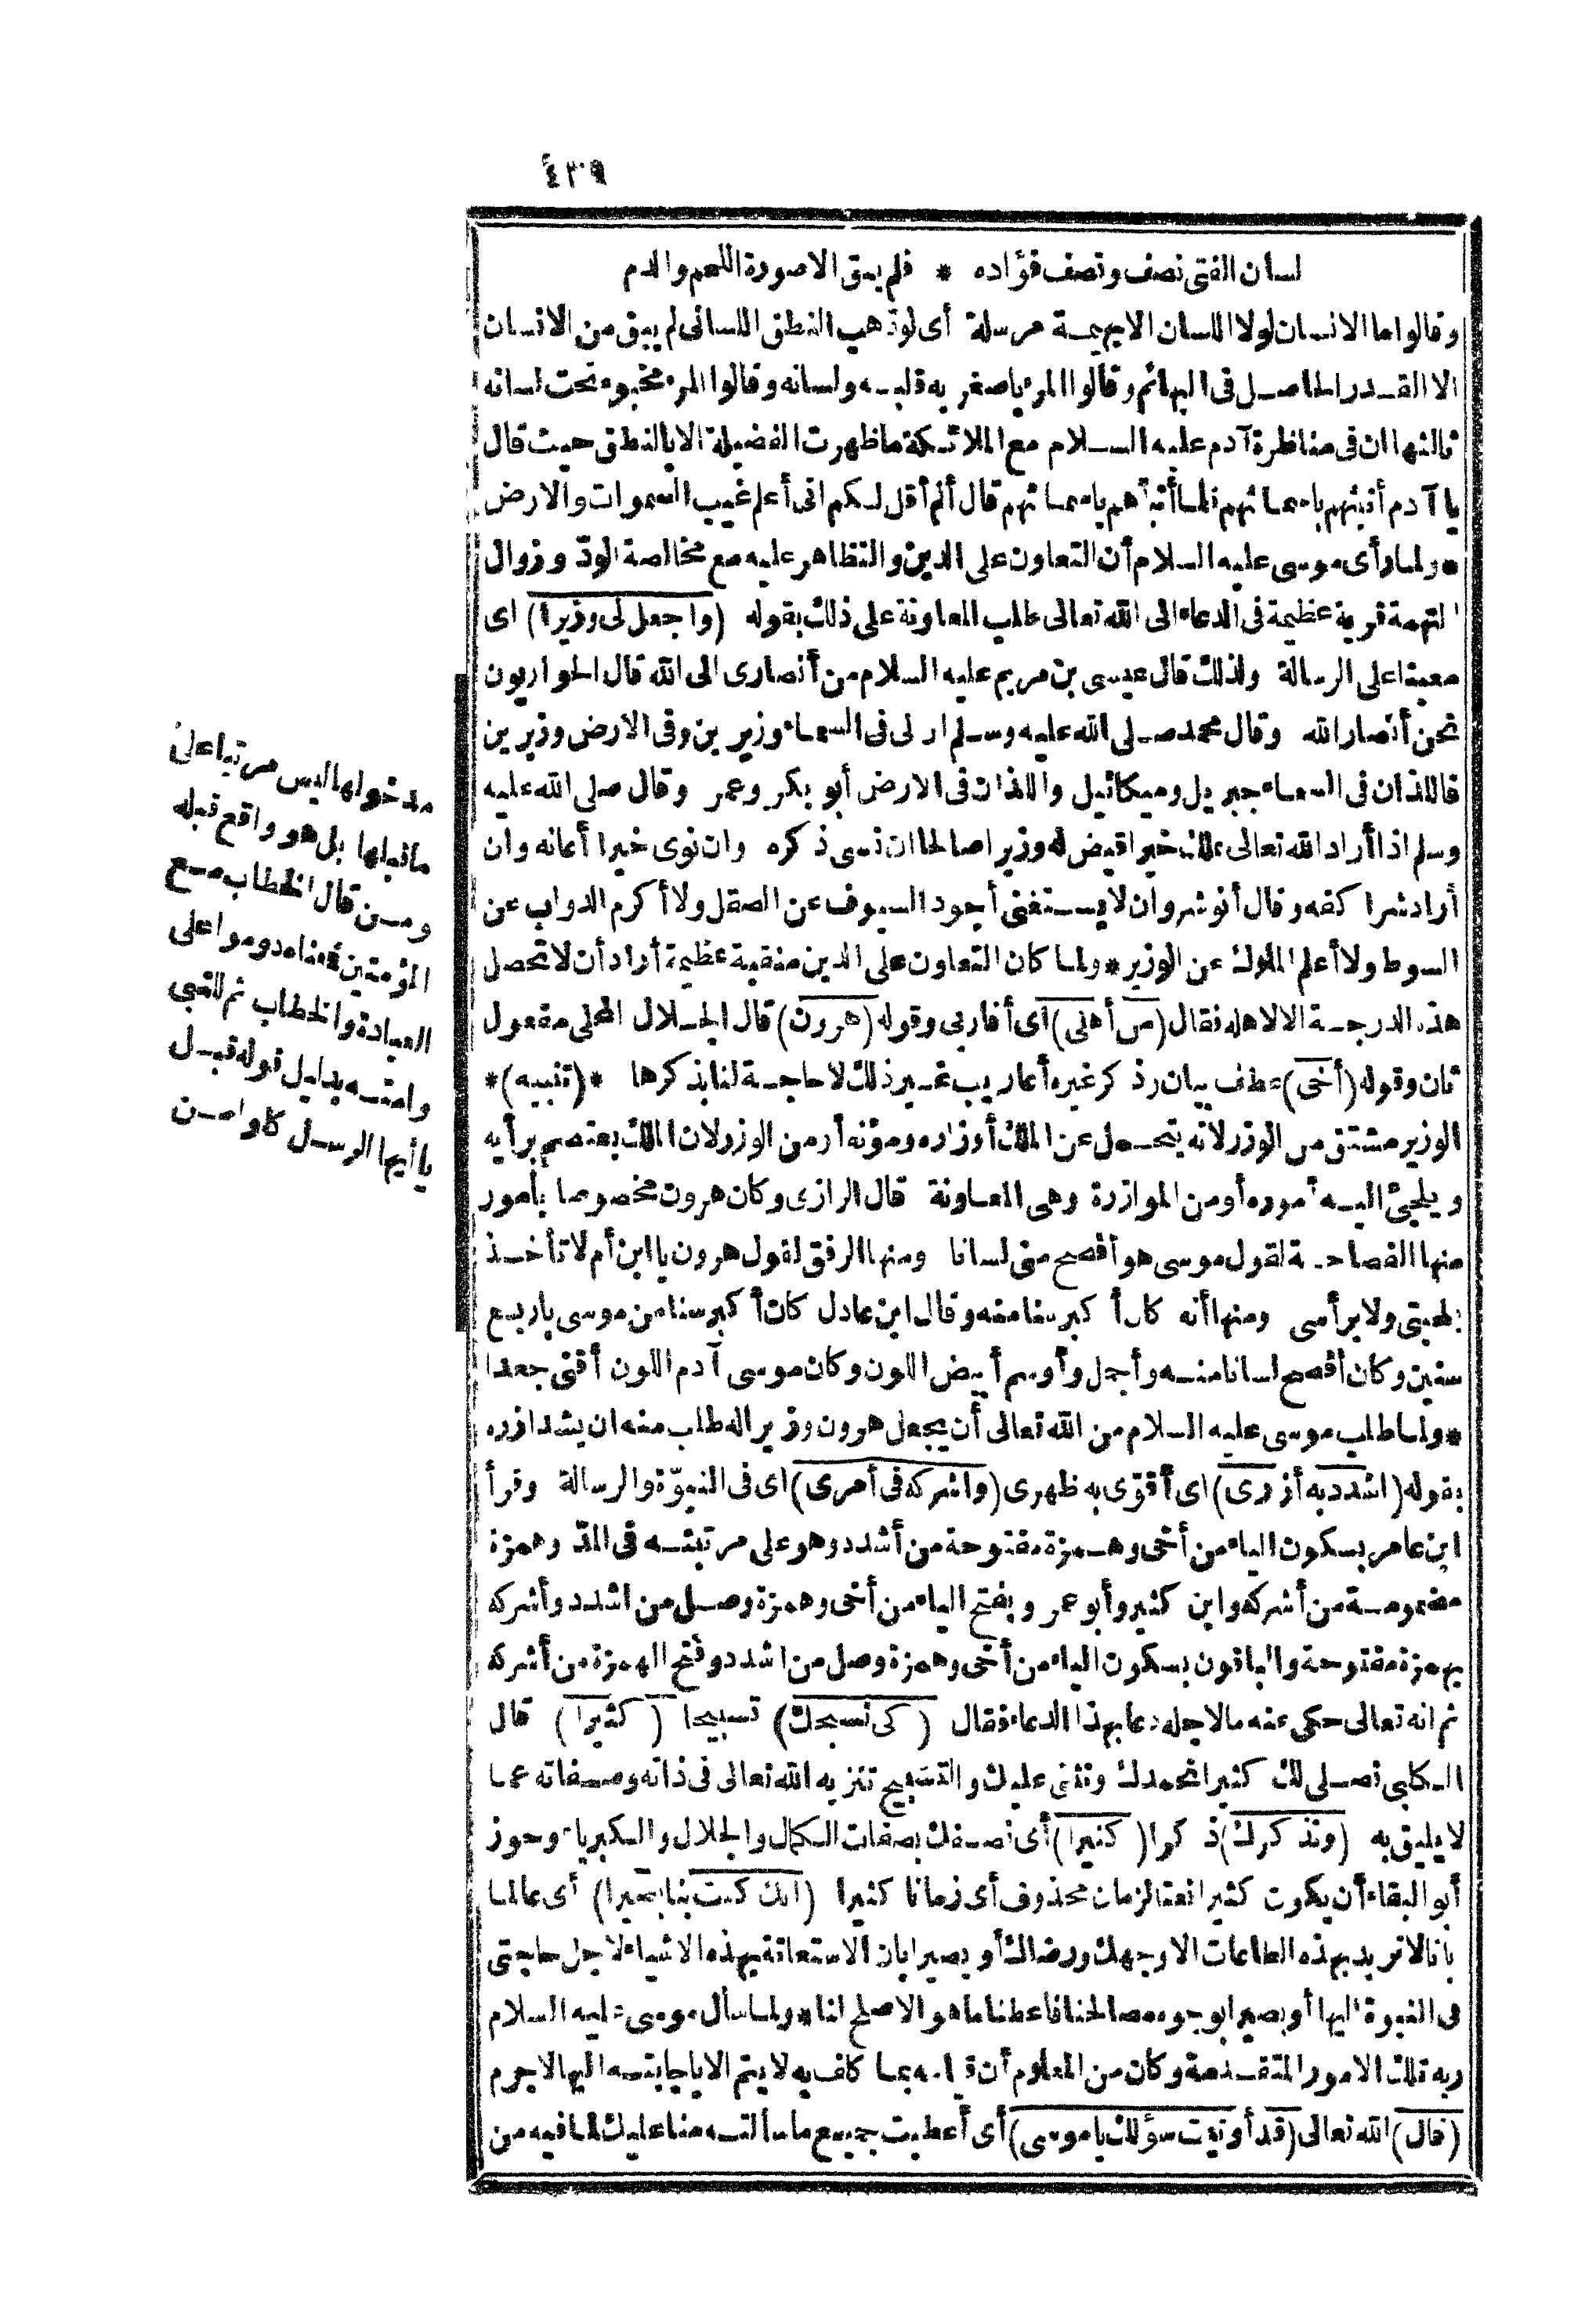 ٤٣٩
لسان الفتى نصف ونصف فؤاده * فلم يبق الا صورة اللحم والدم
وقالوا ما الانسان لولا اللسان الا بهيمة مرسلة أى لو ذهب النطق اللسانى لم يبق من الانسان
الا القدر الحاصل فى البهائم وقالوا المرء باصغريه قلبه ولسانه وقالوا المرء مخبوء تحت لسانه
ثالثها ان فى مناظرة آدم عليه السلام مع الملائكة ما ظهرت الفضيلة الا بالنطق حيث قال
يا آدم أنبئهم باسمائهم فلما أنبأهم باسمائهم قال ألم أقل لكم انى أعلم غيب السموات والارض
* ولما رأى موسى عليه السلام أن التعاون على الدين والتظاهر عليه مع مخالصة الود وزوال
التهمة قربة عظيمة فى الدعاء الى الله تعالى طلب المعاونة على ذلك بقوله (واجعل لى وزيرا) اى
معينا على الرسالة ولذلك قال عيسى بن مريم عليه السلام من أنصارى الى الله قال الحواريون
نحن أنصار الله وقال محمد صلى الله عليه وسلم ان لى فى السماء وزيرين وفى الارض وزيرين
فاللذان فى السماء جبريل وميكائيل واللذان فى الارض أبو بكر وعمر وقال صلى الله عليه
وسلم اذا أراد الله تعالى بملك خيرا قيض له وزيرا صالحا ان نسى ذكره وان نوى خيرا أعانه وان
أراد شرا كفه وقال أنوشروان لا يستغنى أجود السيوف عن الصقل ولا أكرم الدواب عن
السوط ولا أعلم الملوك عن الوزير * ولما كان التعاون على الدين منقبة عظيمة أراد أن لا تحصل
هذه الدرجة الا لاهله فقال (من أهلى) اى أقاربى وقوله (هرون) قال الجلال المحلى مفعول
ثان وقوله (أخى) عطف بيان وذكر غيره أعاريب غير ذلك لا حاجة لنا بذكرها * (تنبيه) *
الوزير مشتق من الوزر لانه يتحمل عن الملك أوزاره ومؤنه أو من الوزر لان الملك يعتصم برأيه
ويلجئ اليه أموره أو من الموازرة وهى المعاونة قال الرازى وكان هرون مخصوصا بأمور
منها الفصاحة لقول موسى هو أفصح منى لسانا ومنها الرفق لقول هرون يا ابن أم لا تأخذ
بلحيتى ولا برأسى ومنها أنه كان أكبر سنا منه وقال ابن عادل كان أكبر سنا من موسى باربع
سنين وكان أفصح لسانا منه وأجمل وأوسم أبيض اللون وكان موسى آدم اللون أقنى جعدا
* ولما طلب موسى عليه السلام من الله تعالى أن يجعل هرون وزيرا له طلب منه ان يشد ازره
بقوله (اشدد به أزرى) اى أقوّى به ظهرى (واشركه فى أمرى) اى فى النبوّة والرسالة وقرأ
ابن عامر بسكون الياء من أخى وهمزة مفتوحة من أشدد وهو على مرتبته فى المدّ وهمزة
مضمومة من أشركه وابن كثير وأبو عمرو بفتح الياء من أخى وهمزة وصل من اشدد وأشركه
بهمزة مفتوحة والباقون بسكون الياء من أخى وهمزة وصل من اشدد وفتح الهمزة من أشركه
ثم انه تعالى حكى عنه ما لاجله دعا بهذا الدعاء فقال (كى نسبحك) تسبيحا (كثيرا) قال
الكلبى نصلى لك كثيرا نحمدك ونثنى عليك والتسبيح تنزيه الله تعالى فى ذاته وصفاته عما
لا يليق به (ونذكرك) ذكرا (كثيرا) أى نصفك بصفات الكمال والجلال والكبرياء وجوز
أبو البقاء أن يكون كثيرا نعتا لزمان محذوف أى زمانا كثيرا (انك كنت بنا بصيرا) أى عالما
بأنا لا نريد بهذه الطاعات الا وجهك ورضاك أو بصيرا بان الاستعانة بهذه الاشياء لاجل حاجتى
فى النبوة اليها أو بصيرا بوجوه مصالحنا فاعطنا ما هو الاصلح لنا * ولما سأل موسى عليه السلام
ربه تلك الامور المتقدمة وكان من المعلوم أن قيامه بما كلف به لا يتم الا باجابته اليها لاجرم
(قال) الله تعالى (قد أوتيت سؤلك يا موسى) أى أعطيت جميع ما سألته منا عليك لما فيه من
مدخولها ليس مرتبا على
ما قبلها بل هو واقع قبله
ومن قال الخطاب مع
المؤمنين فمعناه دوموا على
العبادة والخطاب ثم للنبى
وامته بدليل قوله قبل
يا أيها الرسل كلوا من